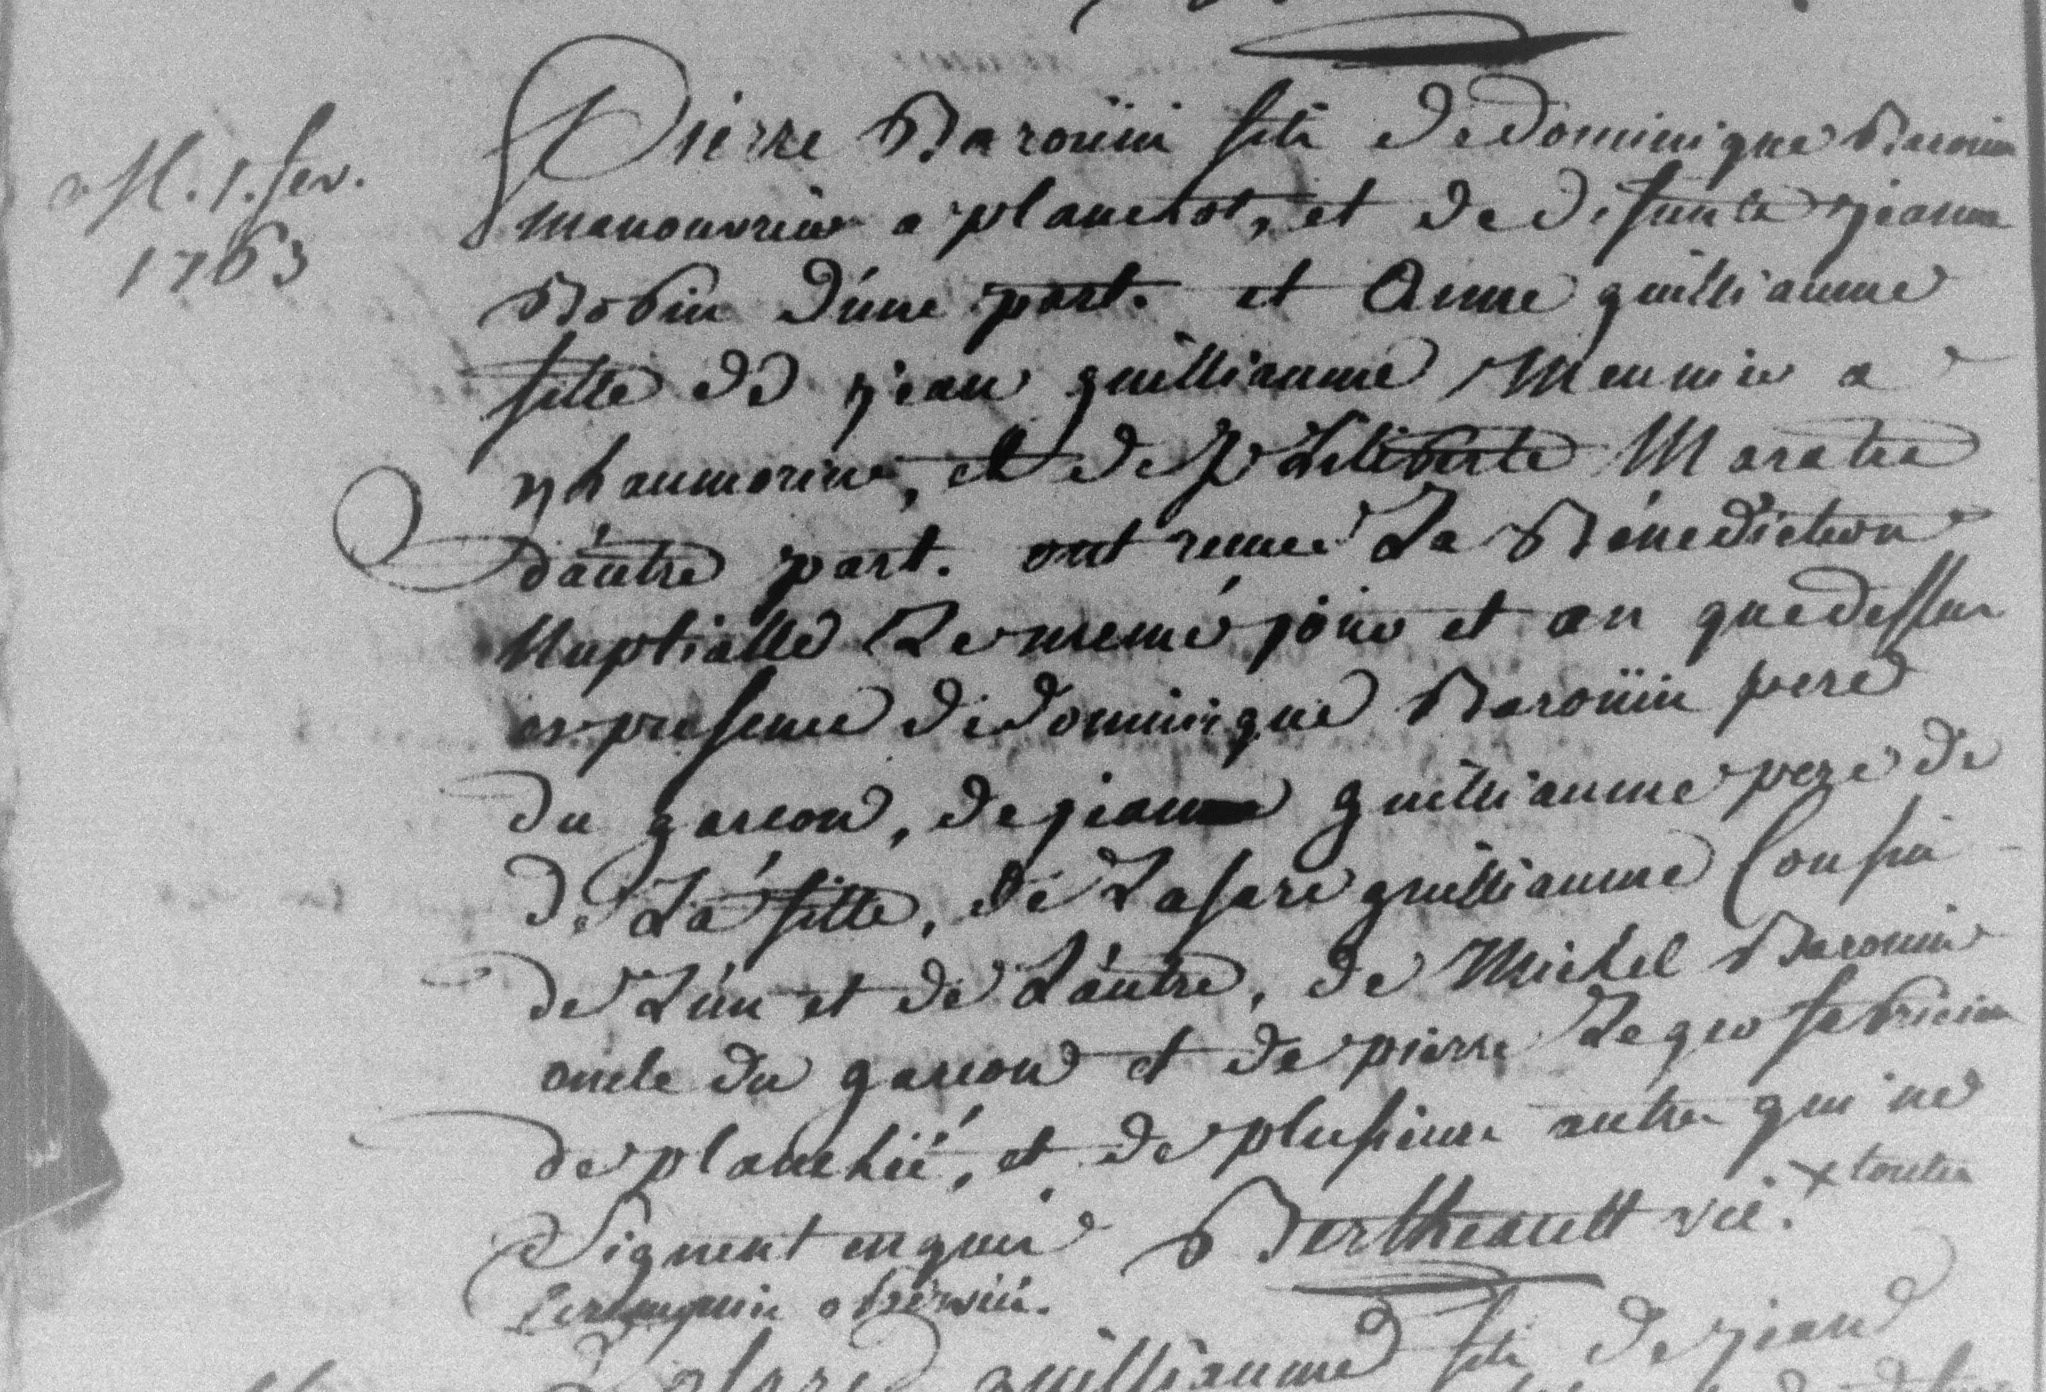 M. 1. fev.
1763
Pierre Baroüin fils de dominique Baroüin
manouvrier a planchot, et de defunte jeanne
Bobin d'une part. et Anne guilliaume
fille de jean guilliaume Meunier a
et de philiberte Maratre
d'autre part. ont receu La Bénédiction
Nuptialle Le meme jour et an que dessus
en presence de dominique Baroüin pere
du garcon, de jean guilliaume pere de
de La fille, de Lasare guilliaume Cousin
de L'un et de L'autre, de Michel Barouin
oncle du garcon et de pierre Legro fabricien
de planchié, et de plusieurs autres qui ne
signent enquis Bertheault vic. x toutes
observées.
Lasare guilliaume fils de jean